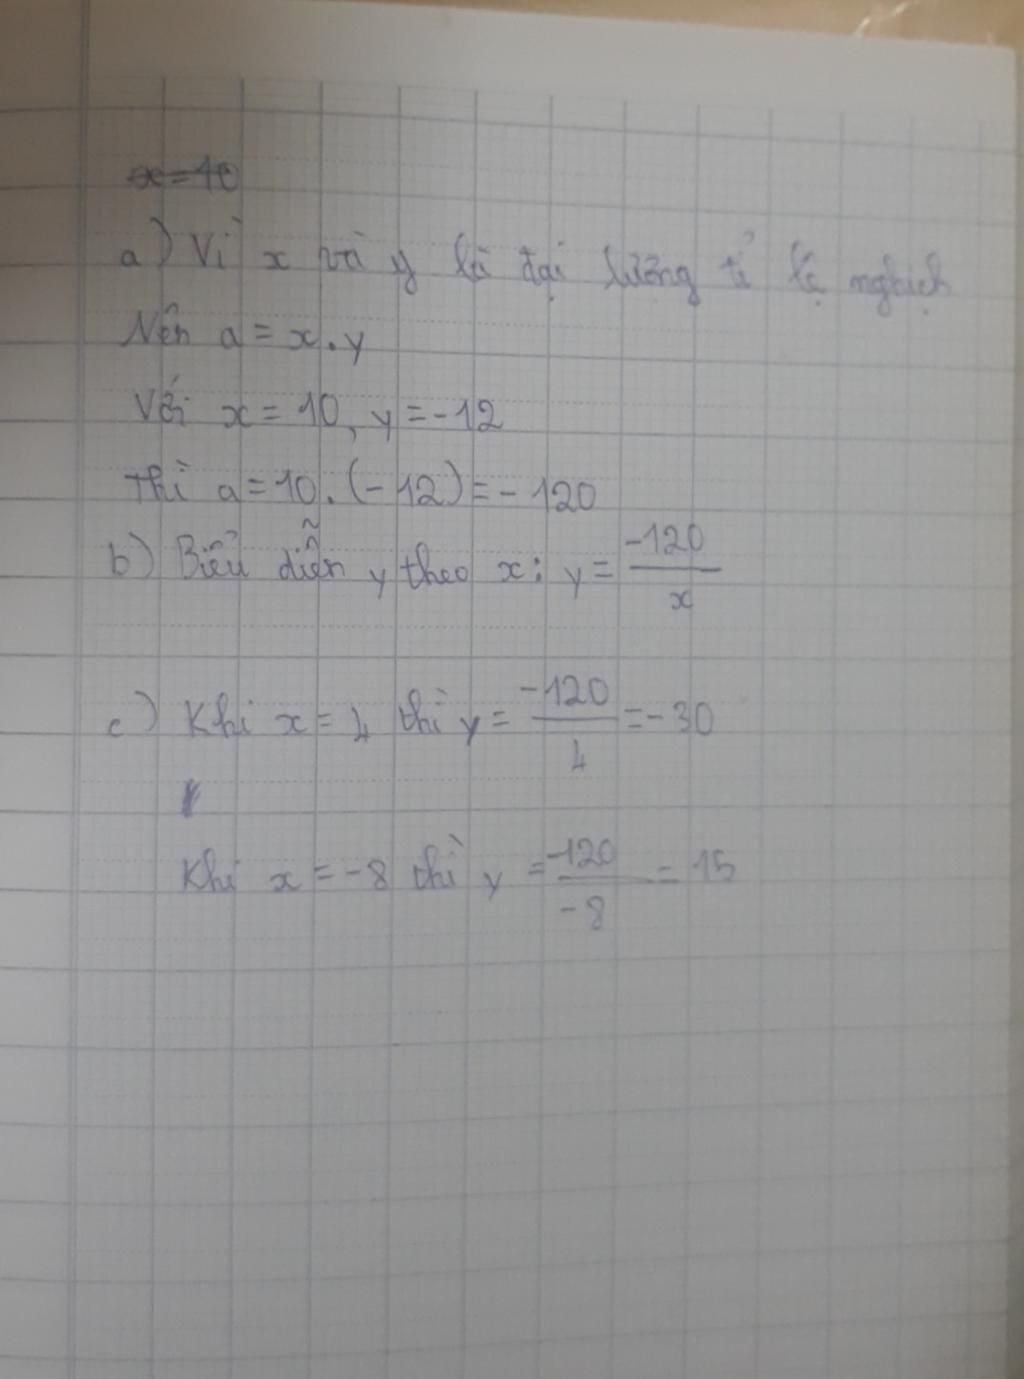 x=10
a) Vì x và y là đại lượng tỉ lệ nghịch
Nên a = x.y
Với x = 10, y = -12
Thì a = 10.(-12) = -120
b) Biểu diễn y theo x: y = -120/x
c) Khi x = 4 thì y = -120/4 = -30
Khi x = -8 thì y = -120/-8 = 15